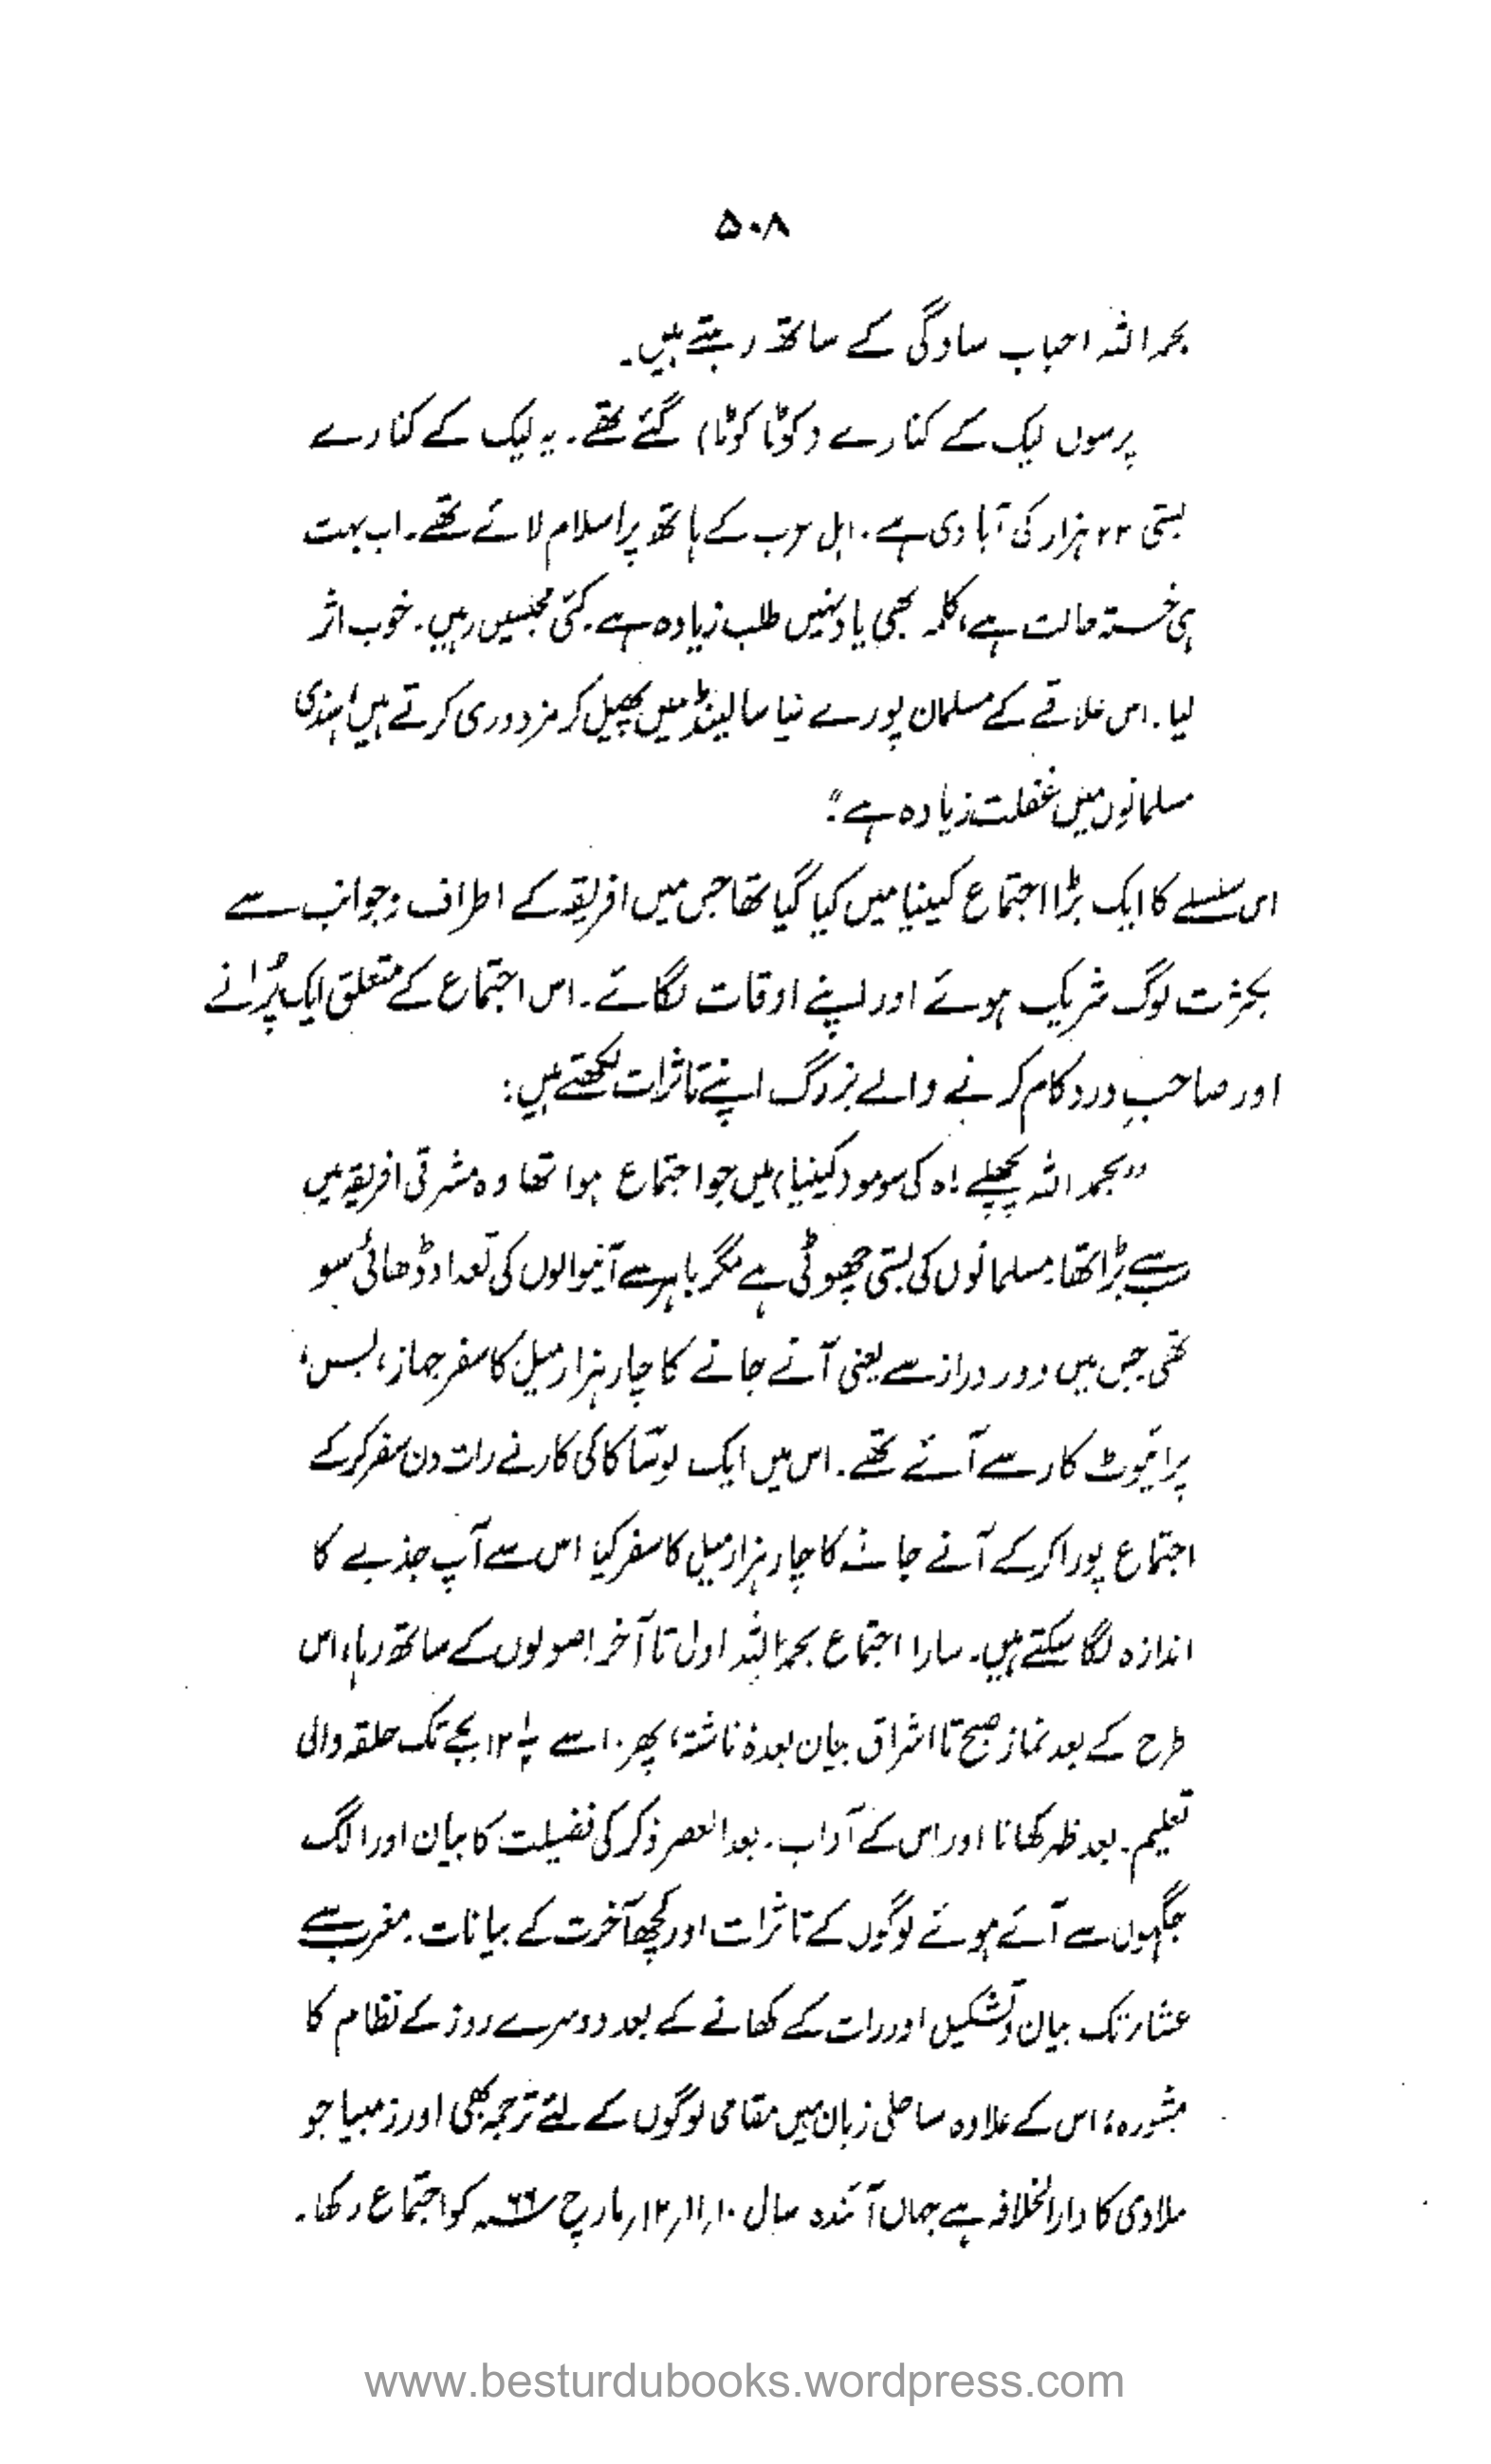 ۵۰۸
بحمد اللہ احباب سادگی کے ساتھ رہتے ہیں۔
پرسوں لیک کے کنارے (کوٹا کوٹا) گئے تھے۔ یہ لیک کے کنارے
بستی ۲۲ ہزار کی آبادی ہے۔ اہل عرب کے ہاتھ پر اسلام لائے تھے۔ اب بہت
ہی خستہ حالت ہے، کلمہ بھی یاد نہیں طلب زیادہ ہے۔ کئی مجلسیں رہیں۔ خوب اثر
لیا۔ اس علاقے کے مسلمان پورے نیاسالینڈ میں پھیل کر مزدوری کرتے ہیں، ہندی
مسلمانوں میں غفلت زیادہ ہے"
اس سلسلے کا ایک بڑا اجتماع کینیا میں کیا گیا تھا جس میں افریقہ کے اطراف و جوانب سے
بکثرت لوگ شریک ہوئے اور اپنے اوقات لگائے۔ اس اجتماع کے متعلق ایک پُرانے
اور صاحبِ درد کام کرنے والے بزرگ اپنے تاثرات لکھتے ہیں:
"بحمد اللہ پچھلے ماہ کیسومو (کینیا) میں جو اجتماع ہوا تھا وہ مشرقی افریقہ میں
سب سے بڑا تھا، مسلمانوں کی بستی چھوٹی ہے مگر باہر سے آنیوالوں کی تعداد ڈھائی سو
تھی جس میں دور دراز سے یعنی آنے جانے کا چار ہزار میل کا سفر جہاز، بس،
پرائیوٹ کار سے آئے تھے۔ اس میں ایک لوساکا کی کار نے رات دن سفر کر کے
اجتماع پورا کر کے آنے جانے کا چار ہزار میل کا سفر کیا اس سے آپ جذبے کا
اندازہ لگا سکتے ہیں۔ سارا اجتماع بحمد اللہ اول تا آخر اصولوں کے ساتھ رہا، اس
طرح کے بعد نماز صبح تا اشراق بیان بعدہٗ ناشتہ، پھر ۱۰ سے ½۱۲ بجے تک حلقہ والی
تعلیم۔ بعد ظہر کھانا اور اس کے آداب۔ بعد العصر ذکر کی فضیلت کا بیان اور الگ
جگہوں سے آئے ہوئے لوگوں کے تاثرات اور کچھ آخرت کے بیانات۔ مغرب سے
عشار تک بیان و تشکیل اور رات کے کھانے کے بعد دوسرے روز کے نظام کا
مشورہ، اس کے علاوہ ساحلی زبان میں مقامی لوگوں کے لئے ترجمہ بھی اور زمبیا جو
ملاوی کا دارالخلافہ ہے جہاں آئندہ سال ۱۰، ۱۱، ۱۲، مارچ ۶۶ء کو اجتماع رکھا۔
www.besturdubooks.wordpress.com